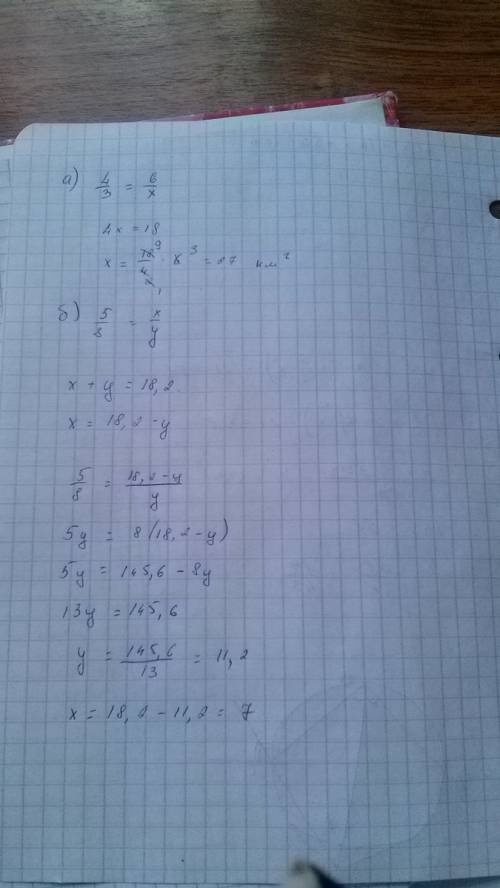 а) 4/3 = 6/x
4x = 18
x = 18 9/4 2 1 · 6 3 = 27 км²
б) 5/8 = x/y
x + y = 18,2
x = 18,2 - y
5/8 = 18,2 - y/y
5y = 8(18,2 - y)
5y = 145,6 - 8y
13y = 145,6
y = 145,6/13 = 11,2
x = 18,2 - 11,2 = 7